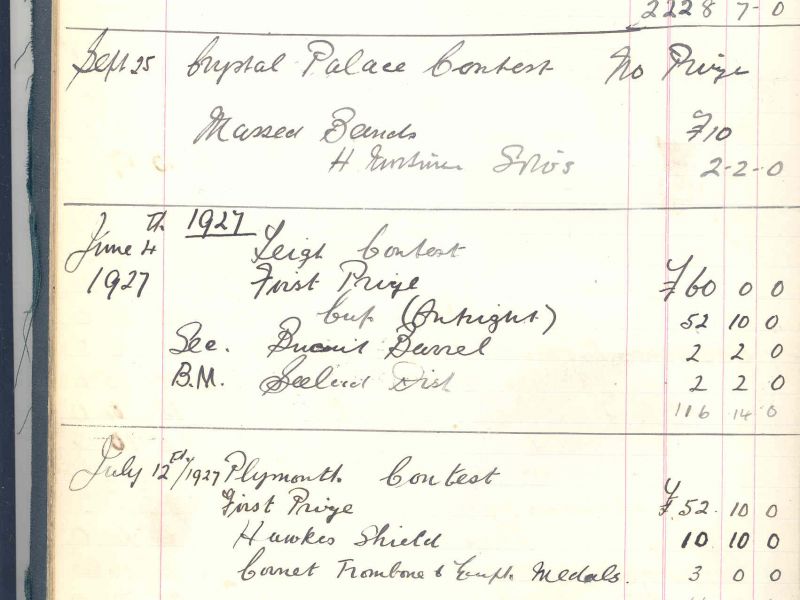 2228 7-0
Sept 25 Crystal Palace Contest No Prize
Massed Bands £10
H Mortimer Solos 2-2-0
1927
June 4th Leigh Contest
1927 First Prize £60 0 0
Cup (Outright) 52 10 0
Sec. Biscuit Barrel 2 2 0
B.M. Dish 2 2 0
116 14 0
July 12th/1927 Plymouth Contest
First Prize £52. 10 0
Hawkes Shield 10 10 0
Cornet Trombone & Euph. Medals. 3 0 0